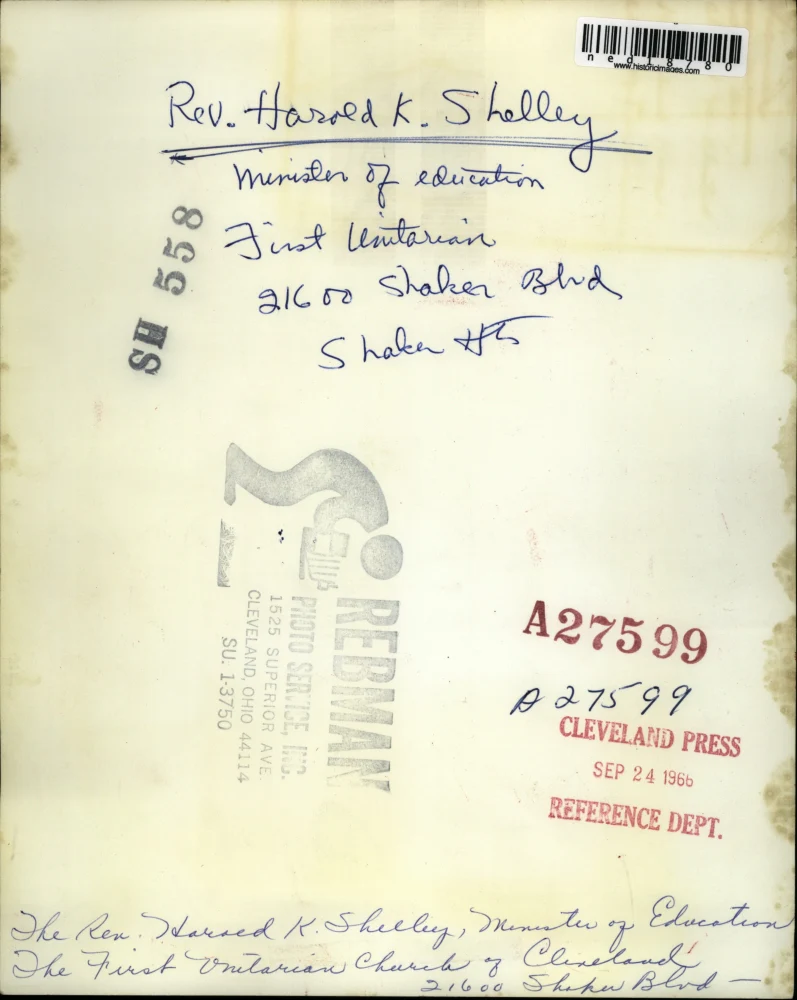 ned18780
www.historicimages.com
Rev. Harold K. Shelley
Minister of education
First Unitarian
21600 Shaker Blvd
Shaker Hts
SH 558
REBMAN
PHOTO SERVICE, INC.
1525 SUPERIOR AVE.
CLEVELAND, OHIO 44114
SU. 1-3750
A27599
A27599
CLEVELAND PRESS
SEP 24 1966
REFERENCE DEPT.
The Rev. Harold K. Shelley, Minister of Education
The First Unitarian Church of Cleveland
21600 Shaker Blvd —